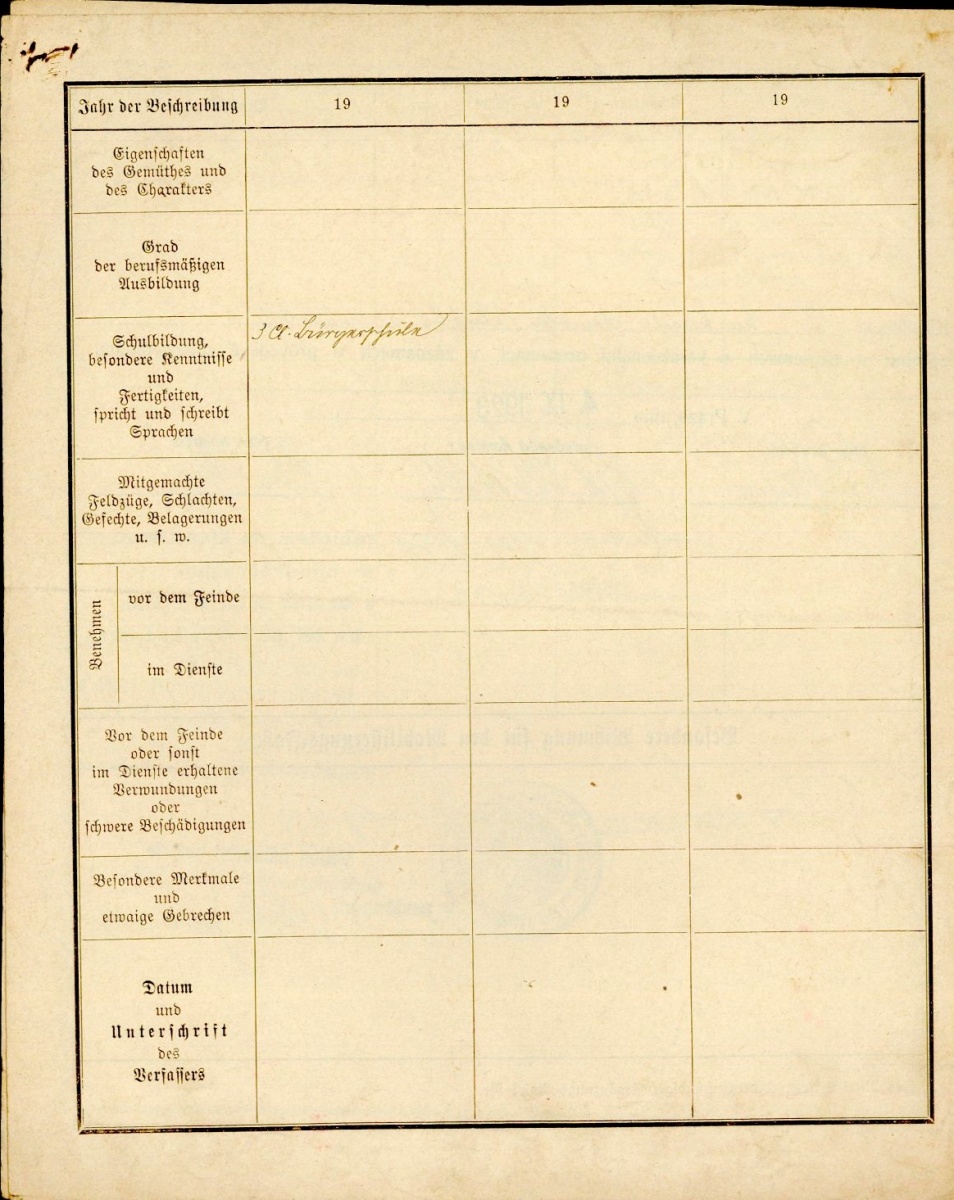 Jahr der Beschreibung 19 19 19
Eigenschaften
des Gemüthes und
des Charakters
Grad
der berufsmäßigen
Ausbildung
3 Cl. Bürgerschule
Schulbildung,
besondere Kenntnisse
und
Fertigkeiten,
spricht und schreibt
Sprachen
Mitgemachte
Feldzüge, Schlachten,
Gefechte, Belagerungen
u. s. w.
Benehmen
vor dem Feinde
im Dienste
Vor dem Feinde
oder sonst
im Dienste erhaltene
Verwundungen
oder
schwere Beschädigungen
Besondere Merkmale
und
etwaige Gebrechen
Datum
und
Unterschrift
des
Verfassers